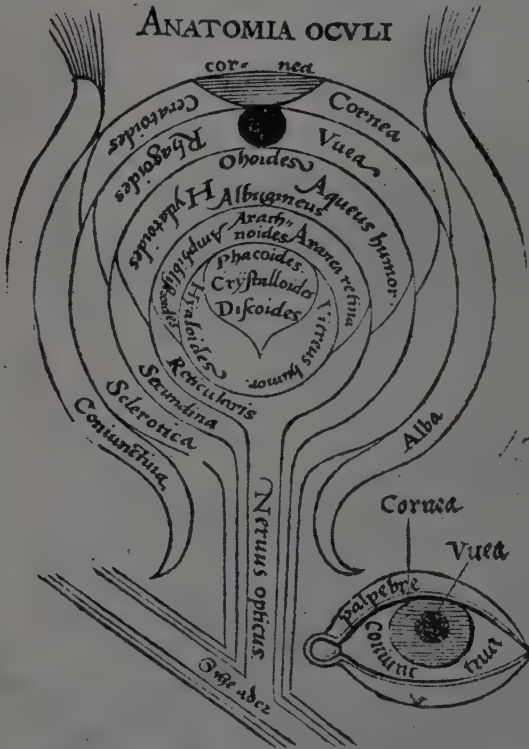 ANATOMIA OCVLI
cor= nea
Ceratoides
Cornea
Rhagoides
Vuea
Ohoides
Hydatoides
Albugineus
Aqueus humor.
Arach=
noides
Aranea retina
Phacoides
Crÿstalloides
Discoides
Hyaloides
Vitreus humor.
Reticularis
Secundina
Sclerotica
Coniunctiua
Alba
Neruus opticus
Cornea
Vuea
palpebre
Coniunc
tiua